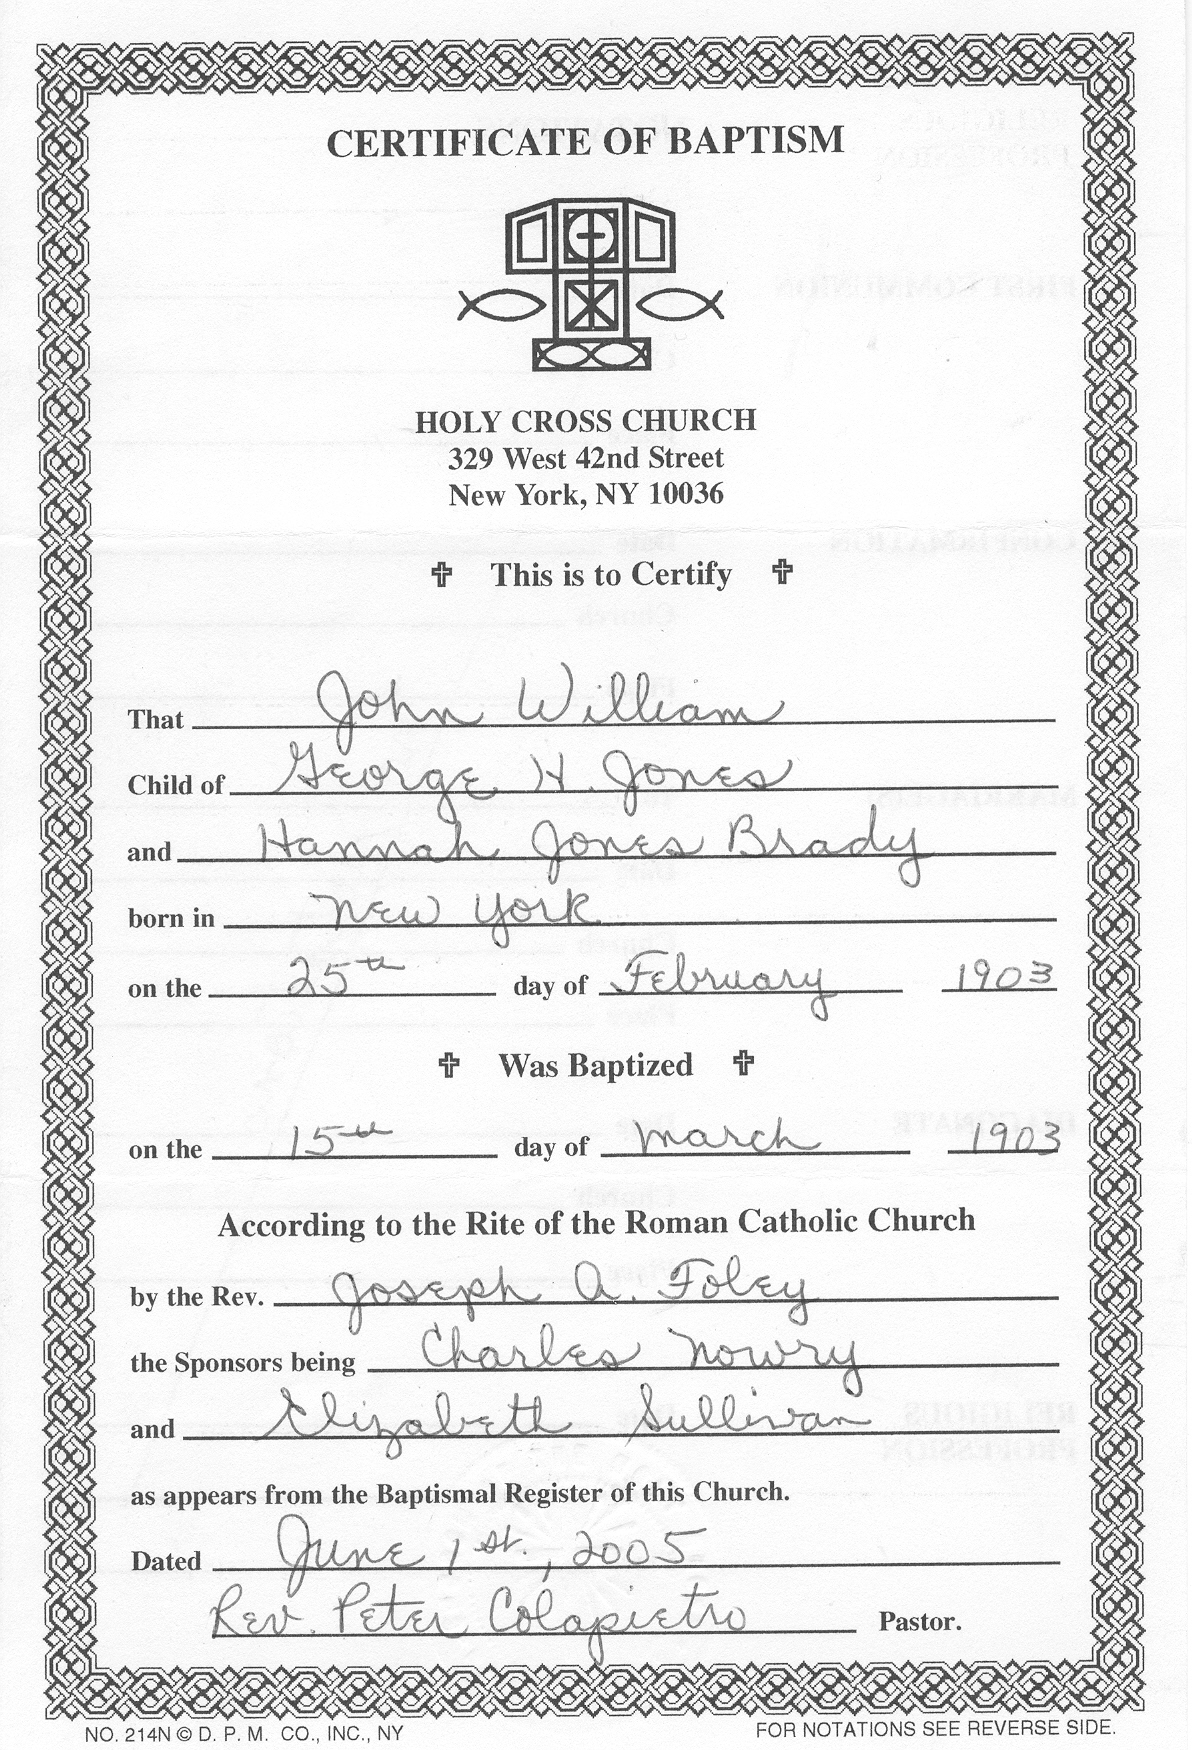 CERTIFICATE OF BAPTISM
HOLY CROSS CHURCH
329 West 42nd Street
New York, NY 10036
✞ This is to Certify ✞
That John William
Child of George H. Jones
and Hannah Jones Brady
born in New York
on the 25th day of February 1903
✞ Was Baptized ✞
on the 15th day of March 1903
According to the Rite of the Roman Catholic Church
by the Rev. Joseph A. Foley
the Sponsors being Charles Nowry
and Elizabeth Sullivan
as appears from the Baptismal Register of this Church.
Dated June 1st., 2005
Rev. Peter Colapietro Pastor.
NO. 214N © D. P. M. CO., INC., NY
FOR NOTATIONS SEE REVERSE SIDE.